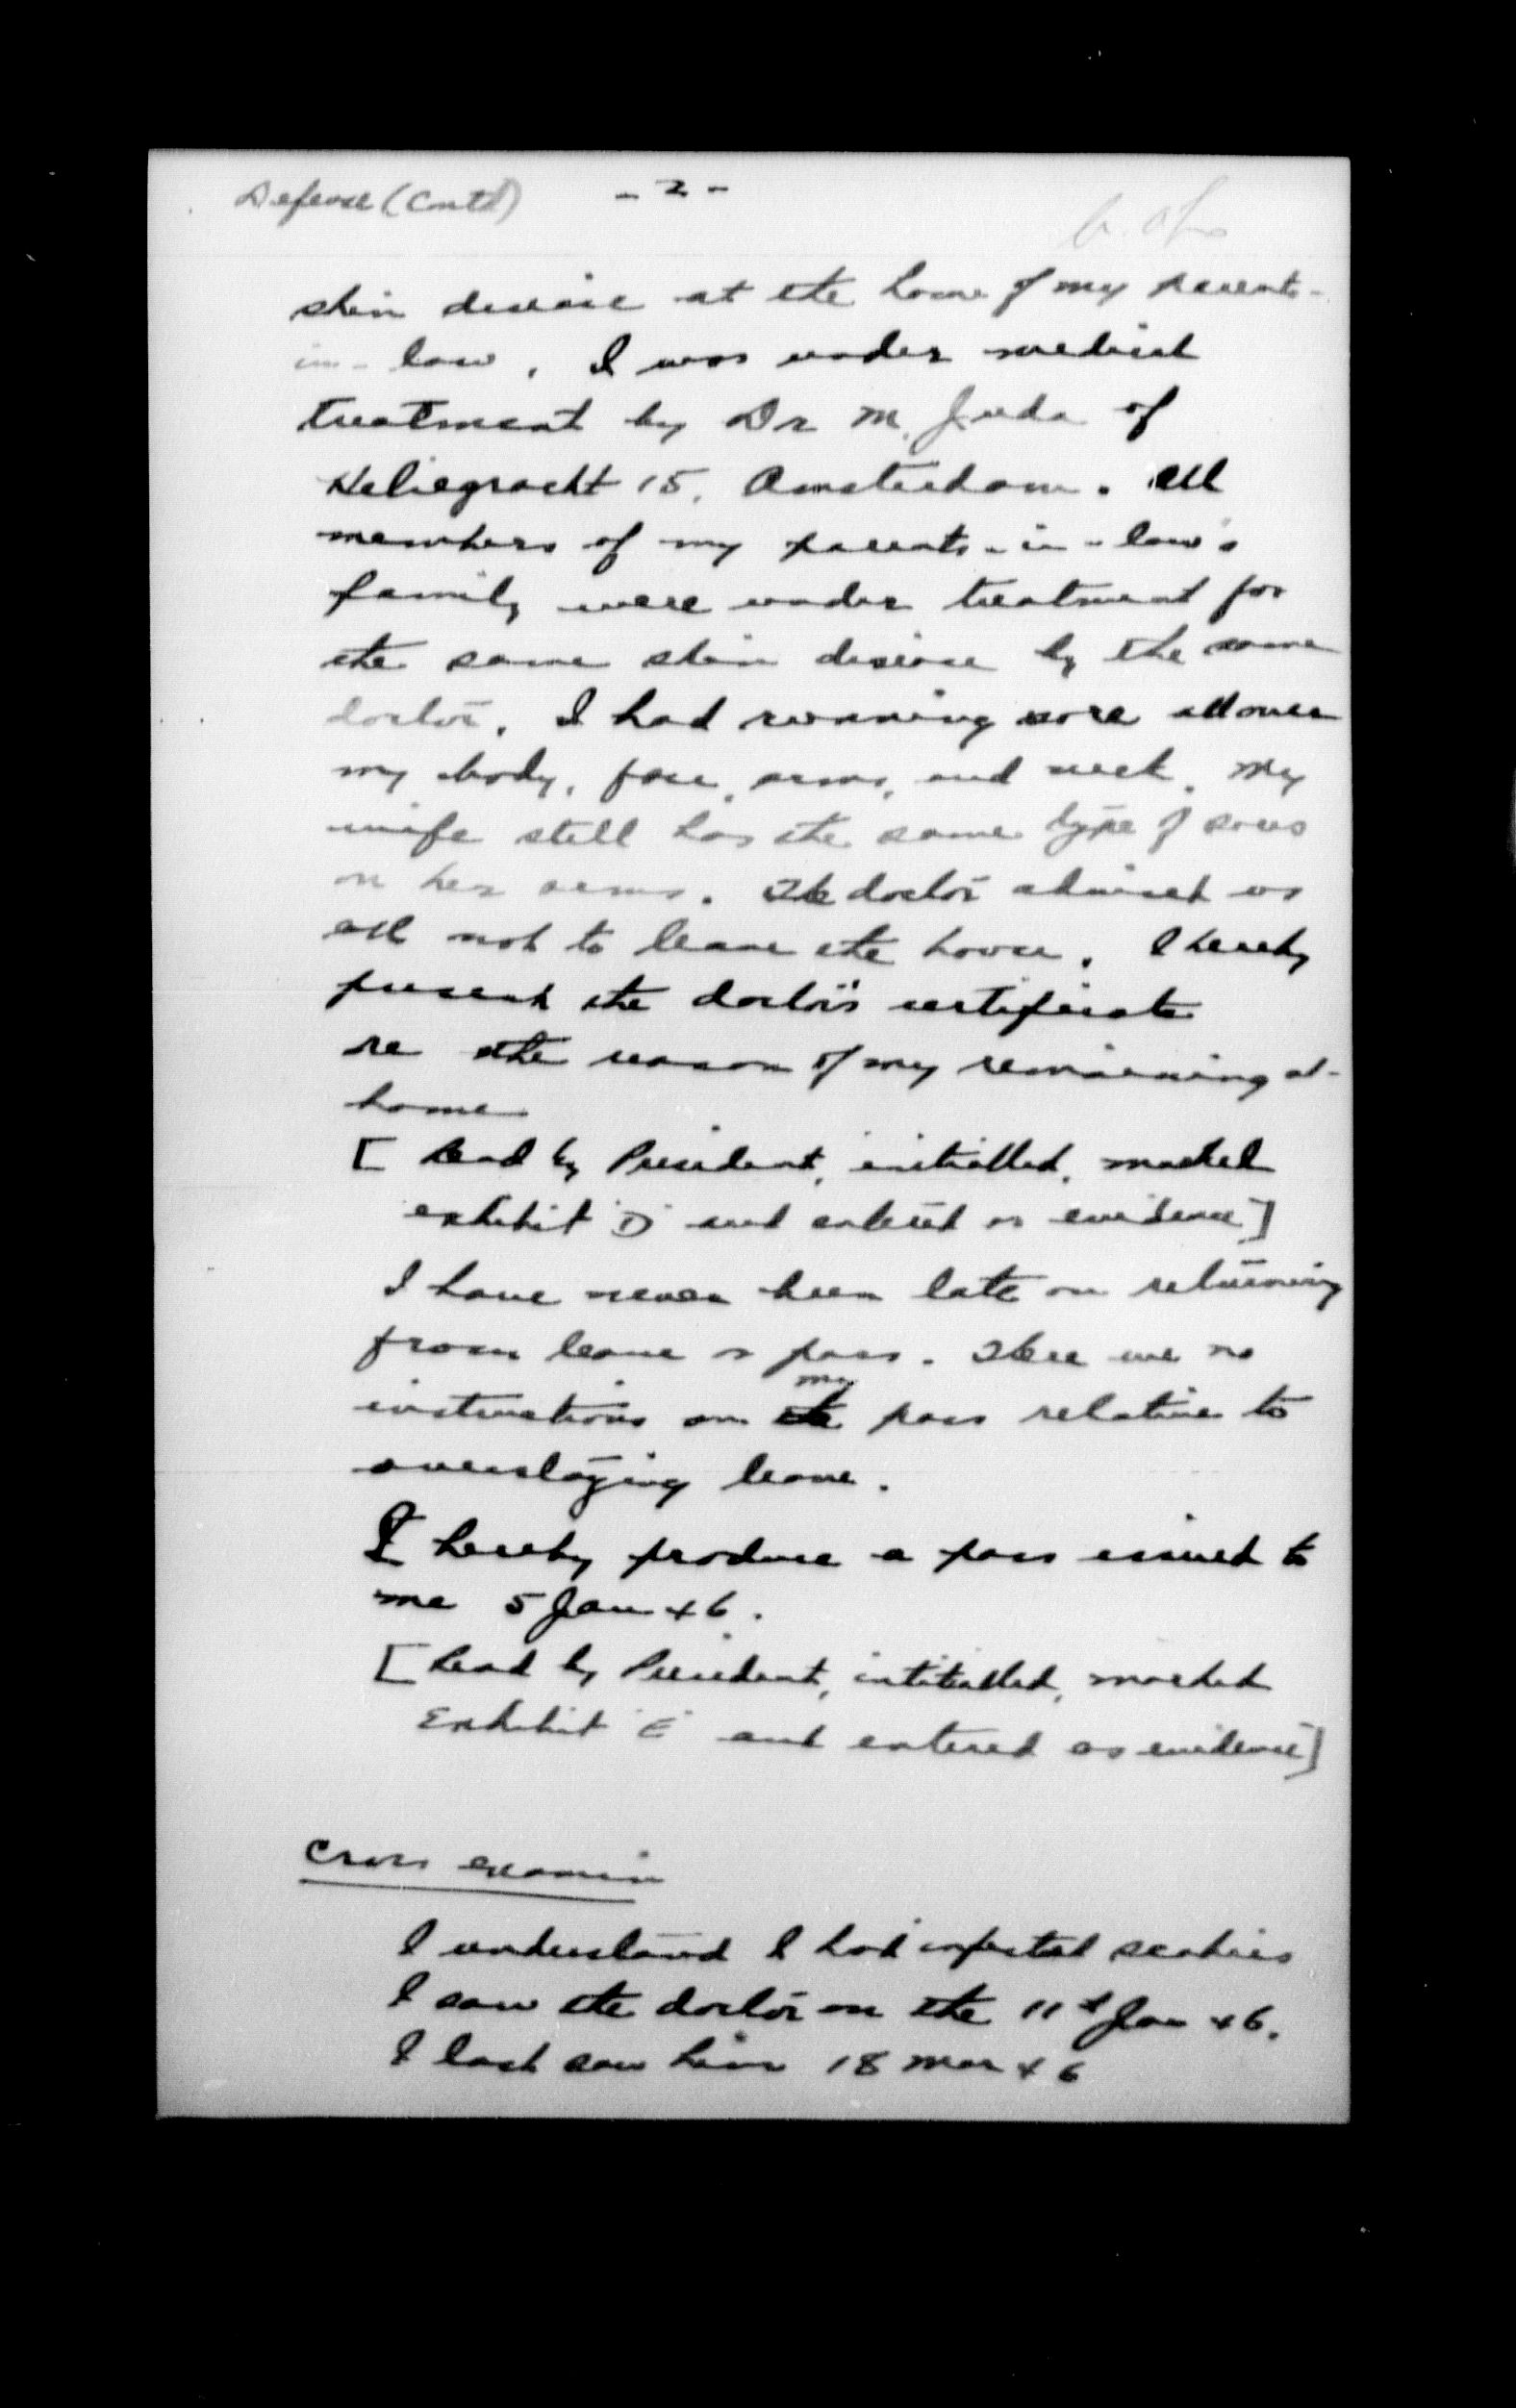 Defense (Contd) - 2 -
skin disease at the home of my parents-
in-law. I was under medical
treatment by Dr M. Juda of
15, Amsterdam. All
members of my parents-in-law's
family were under treatment for
the same skin disease by the same
doctor. I had running sore all over
my body, face, arms, and neck. My
wife still has the same type of sores
on her arms. The doctor advised us
all not to leave the house. I hereby
present the doctor's certificate
re the reason of my remaining at
home
[ Read by President, initialled, marked
exhibit "D" and entered as evidence]
I have never been late on returning
from leave or pass. There are no
instructions on my pass relative to
overstaying leave.
I hereby produce a pass issued to
me 5 Jan 46.
[ Read by President, intitialled, marked
Exhibit "E" and entered as evidence]
Cross examin
I understand I had infected scabies
I saw the doctor on the 11th Jan 46.
I last saw him 18 Mar 46